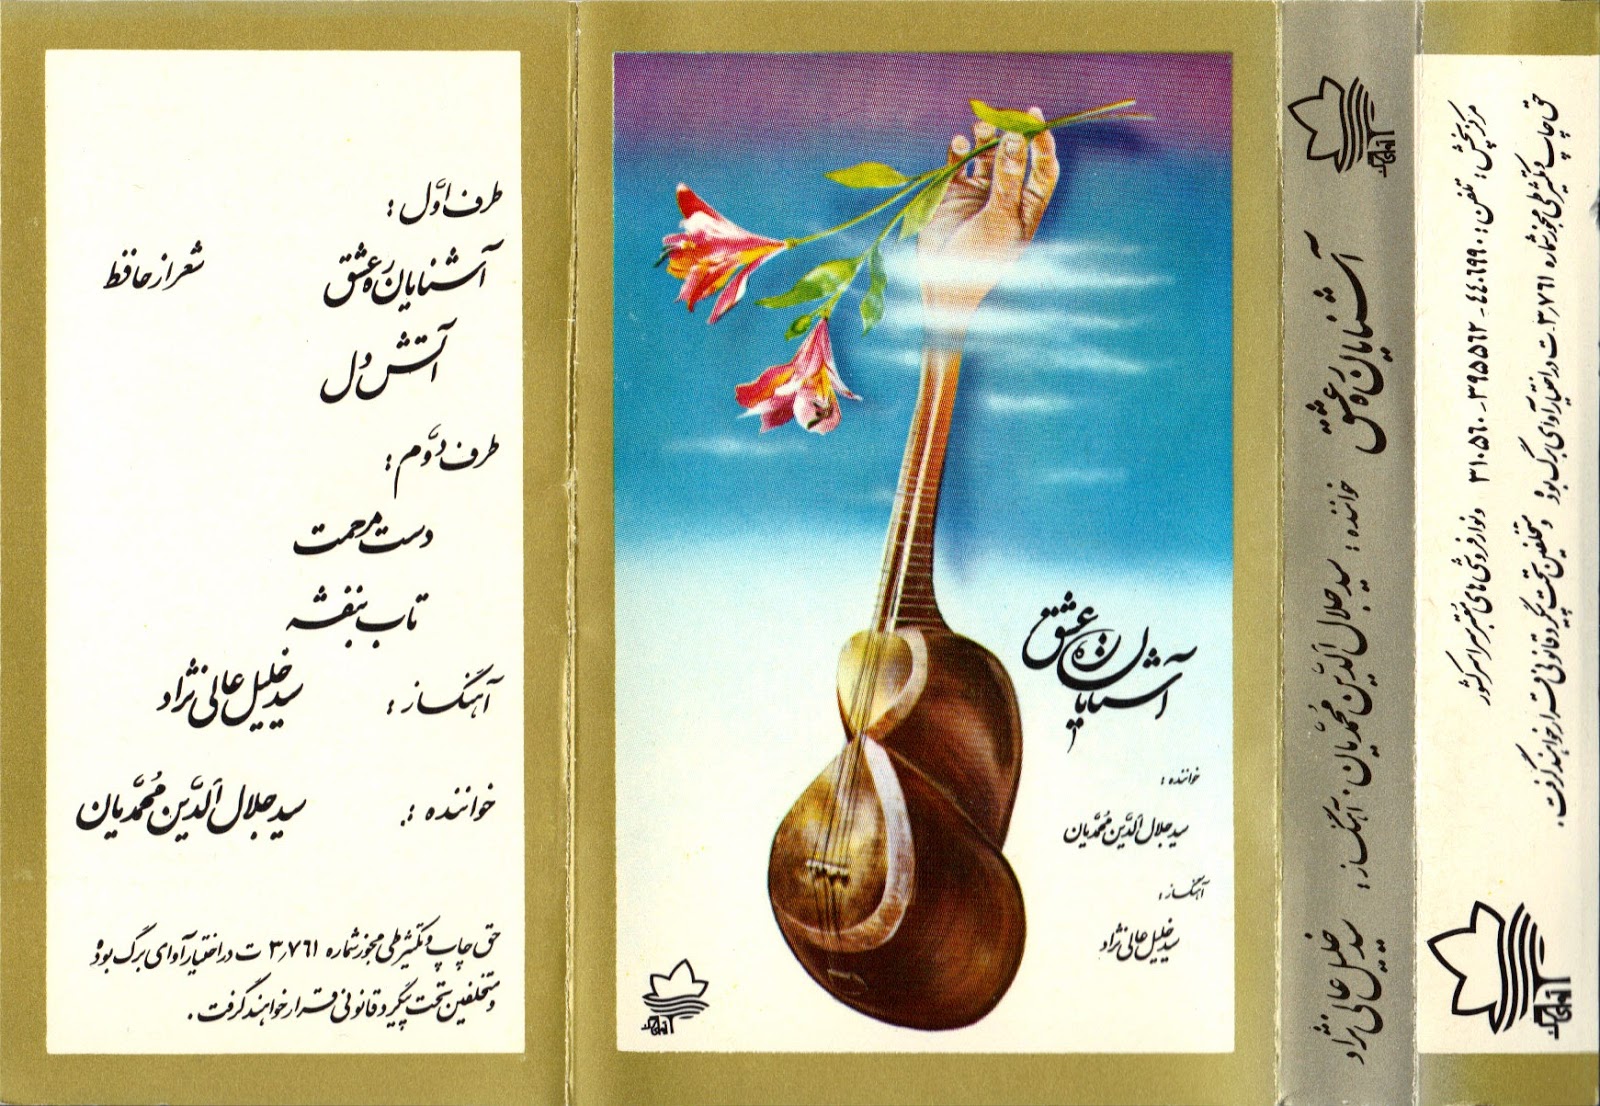 طرف اوّل :
آشنایان ره عشق شعر از حافظ
آتش دل
طرف دوّم :
دست مرحمت
تاب بنفشه
آهنگساز : سید خلیل عالی نژاد
خواننده : سید جلال الدّین مُحمّدیان
حق چاپ و تکثیر طی مجوز شماره ۳٫۷۶۱ ت در اختیار آوای برگ بوده
و متخلفین تحت پیگرد قانونی قرار خواهند گرفت .
آشنایان ره عشق
خواننده :
سید جلال الدّین مُحمّدیان
آهنگساز :
سید خلیل عالی نژاد
آوای برگ
آوای برگ
آشنایان ره عشق خواننده : سید جلال الدّین مُحمّدیان . آهنگساز : سید خلیل عالی نژاد
حق چاپ و تکثیر طی مجوز شماره ۳٫۷۶۱ ت در اختیار آوای برگ بوده و متخلفین تحت پیگرد قانونی قرار خواهند گرفت .
مرکز پخش : تلفن : ۴۴۰۶۹۹۰ - ۳۹۵۵۶۲ - ۳۱۰۵۶۰ و نوار فروشی های معتبر سراسر کشور
آوای برگ